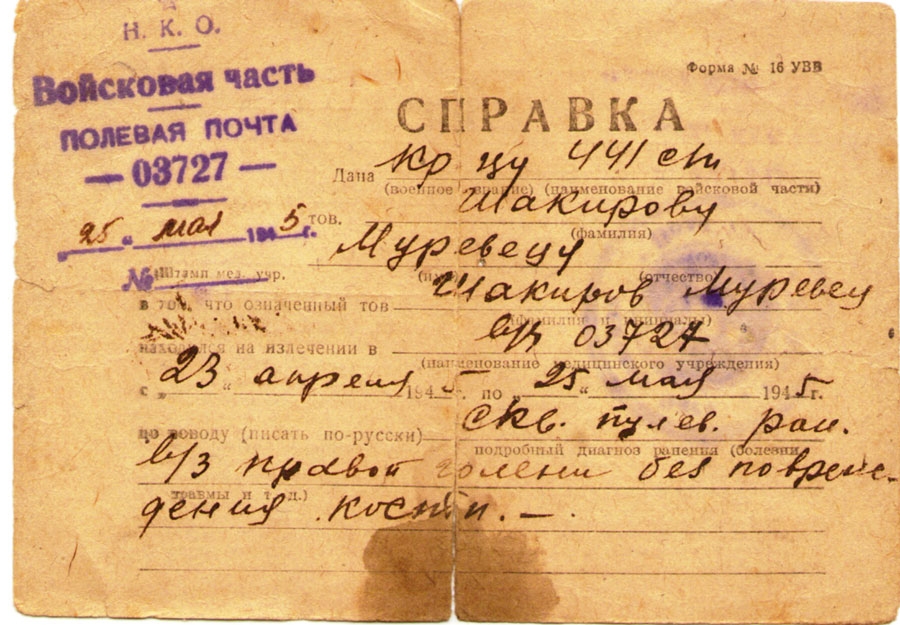 Н. К. О.
Войсковая часть
ПОЛЕВАЯ ПОЧТА
— 03727 —
„ 25 “ мая 1945 г.
№
Штамп мед. учр.
Форма № 16 УВВ
СПРАВКА
Дана кр цу 441 сп
(военное звание) (наименование войсковой части)
тов. Шакирову
(фамилия)
Муревецу
(имя) (отчество)
в том, что означенный тов Шакиров Муревец
(фамилия и инициалы)
находился на излечении в в/ч 03727
(наименование медицинского учреждения)
с „ 23 “ апреля 1945 по „ 25 “ мая 1945г.
по поводу (писать по-русски) Скв. пулев. ран.
подробный диагноз ранения (болезни
в/3 правой голени без повреж-
травмы и т. д.)
дения кости. —